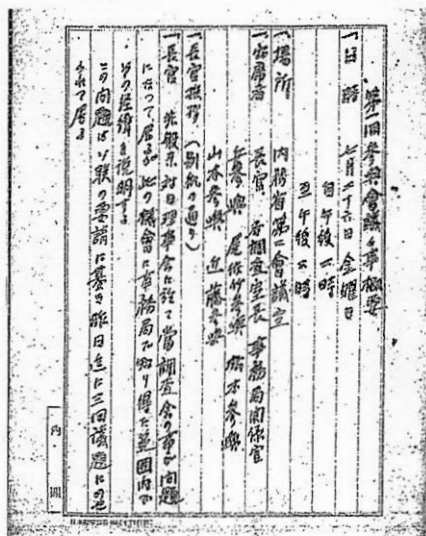 第一回參與會議々事概要
一、日時 七月二十六日 金曜日
自午後一時
至午後六時
一、場所 内務省第二會議室
一、出席者 長官 各調査室長 事務局関係官
參與 尾佐竹參與 舩木參與
山本參與 近藤參與
一、長官挨拶(別紙の通り)
一、長官 先般来対日理事会に於て當調査会の事が問題
になつて居るが此の機會に事務局で知り得た範囲内で
その経緯を説明する
この問題はソ聯の要請に基き昨日迄に三回議題にのせ
られて居る
内閣